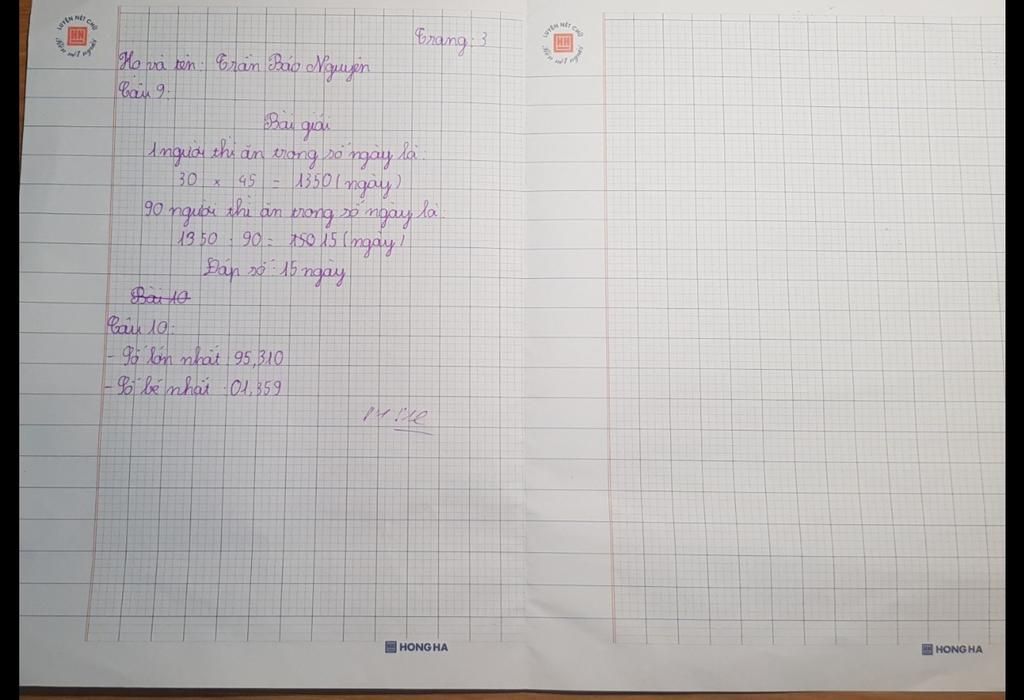 LUYỆN NÉT CHỮ
HH
Rèn nết người
LUYỆN NÉT CHỮ
HH
Rèn nết người
Trang: 3
Họ và tên: Trần Bảo Nguyên
Câu 9:
Bài giải
1 người thì ăn trong số ngày là:
30 × 45 = 1350 (ngày)
90 người thì ăn trong số ngày là:
1350 : 90 = 150 15 (ngày)
Đáp số: 15 ngày
Bài 10
Câu 10:
- Số lớn nhất: 95,310
- Số bé nhất: 01,359
HONG HA
HONG HA